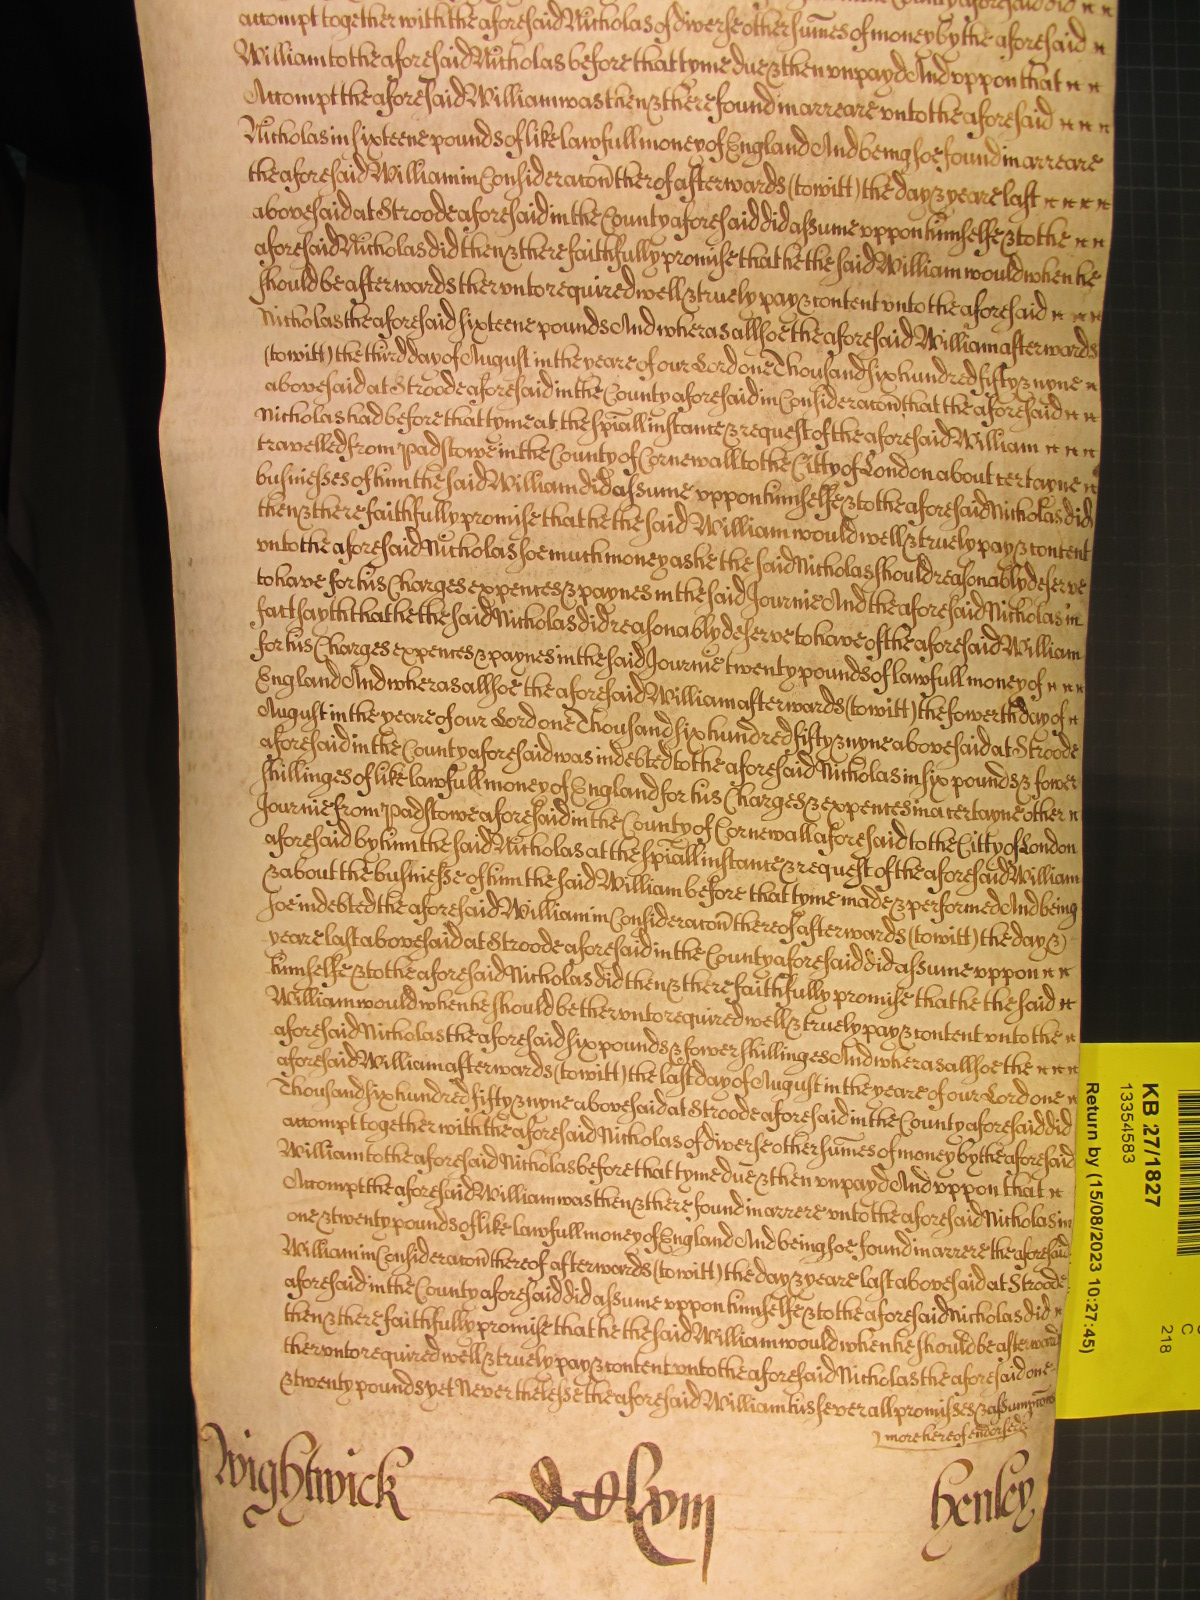 attompt together with the aforesaid Nicholas of diverse other sumes of money by the aforesaid
William to the aforesaid Nicholas before that tyme due & then unpayd And uppon that
Attompt the aforesaid William was then & there found in arreare unto the aforesaid
Nicholas in sixteene pounds of like lawfull money of England And being soe found in arreare
the aforesaid William in Consideracon therof afterwards (to witt) the day & yeare last
abovesaid at Stroode aforesaid in the County aforesaid did assume uppon himselfe & to the
aforesaid Nicholas did then & there faithfully promise that he the said William would when he
should be afterwards therunto required well & truely pay & content unto the aforesaid
Nicholas the aforesaid sixteene pounds And wheras allsoe the aforesaid William afterwards
(to witt) the third day of August in the yeare of our Lord one Thousand six hundred fifty & nyne
abovesaid at Stroode aforesaid in the County aforesaid in Consideracon that the aforesaid
Nicholas had before that tyme at the spiall instance & request of the aforesaid William
travelled from Padstowe in the County of Cornewall to the Citty of London about certayne
businesses of him the said William did assume uppon himselfe & to the aforesaid Nicholas did
then & there faithfully promise that he the said William would well & truely pay & content
unto the aforesaid Nicholas soe much money as he the said Nicholas should reasonably deserve
to have for his Charges expences & paynes in the said Journie And the aforesaid Nicholas in
fact sayth that he the said Nicholas did reasonably deserve to have of the aforesaid William
for his Charges expences & paynes in the said Journie twenty pounds of lawfull money of
England And wheras allsoe the aforesaid William afterwards (to witt) the fowerth day of
August in the yeare of our Lord one Thousand six hundred fifty & nyne abovesaid at Stroode
aforesaid in the County aforesaid was indebted to the aforesaid Nicholas in six pounds & fower
shillinges of like lawfull money of England for his Charges & expences in a certayne other
Journie from Padstowe aforesaid in the County of Cornewall aforesaid to the Citty of London
aforesaid by him the said Nicholas at the spiall instance & request of the aforesaid William
& about the businesse of him the said William before that tyme made & performed And being
soe indebted the aforesaid William in Consideracon thereof afterwards (to witt) the day &
yeare last abovesaid at Stroode aforesaid in the County aforesaid did assume uppon
himselfe & to the aforesaid Nicholas did then & there faithfully promise that he the said
William would when he should be therunto required well & truely pay & content unto the
aforesaid Nicholas the aforesaid six pounds & fower shillinges And wheras allsoe the
aforesaid William afterwards (to witt) the last day of August in the yeare of our Lord one
Thousand six hundred fifty & nyne abovesaid at Stroode aforesaid in the County aforesaid did
attompt together with the aforesaid Nicholas of diverse other sumes of money by the aforesaid
William to the aforesaid Nicholas before that tyme due & then unpayd And uppon that
Attompt the aforesaid William was then & there found in arrere unto the aforesaid Nicholas in
one & twenty pounds of like lawfull money of England And being soe found in arrere the aforesaid
William in Consideracon thereof afterwards (to witt) the day & yeare last abovesaid at Stroode
aforesaid in the County aforesaid did assume uppon himselfe & to the aforesaid Nicholas did
then & there faithfully promise that he the said William would when he should be afterward
therunto required well & truely pay & content unto the aforesaid Nicholas the aforesaid one
& twenty pounds yet Neverthelesse the aforesaid William his severall promisses & assumpcons
more hereof endorsed
Wightwick
Henley
KB 27/1827
13354583
Return by (15/08/2023 10:27:45)
C
218